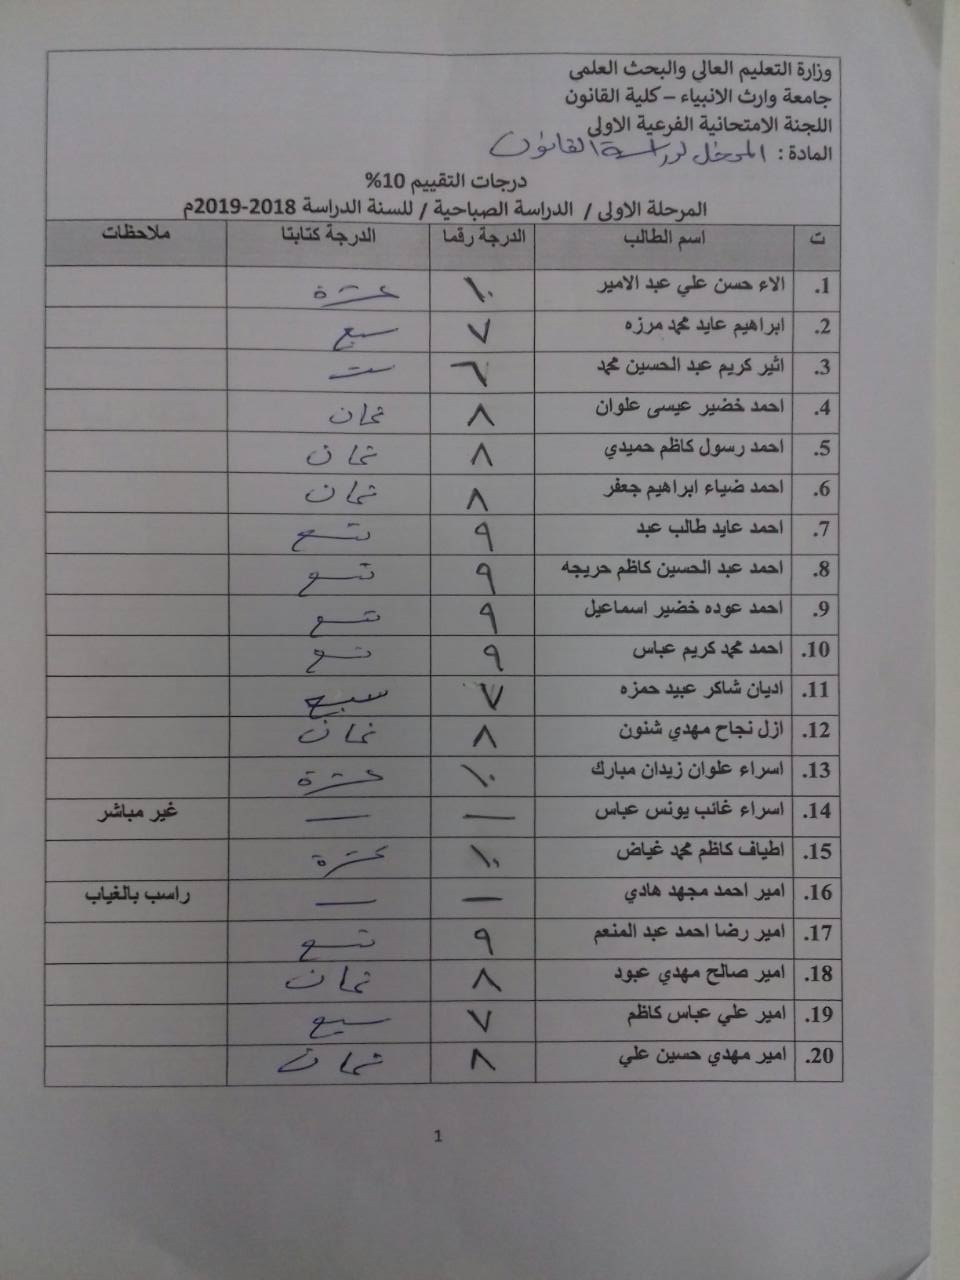 وزارة التعليم العالي والبحث العلمي
جامعة وارث الانبياء – كلية القانون
اللجنة الامتحانية الفرعية الاولى
المادة : المدخل لدراسة القانون
درجات التقييم 10%
المرحلة الاولى / الدراسة الصباحية / للسنة الدراسة 2018-2019م
ت اسم الطالب الدرجة رقما الدرجة كتابتا ملاحظات
1. الاء حسن علي عبد الامير ١٠ عشرة
2. ابراهيم عايد محمد مرزه ٧ سبع
3. اثير كريم عبد الحسين محمد ٦ ست
4. احمد خضير عيسى علوان ٨ ثمان
5. احمد رسول كاظم حميدي ٨ ثمان
6. احمد ضياء ابراهيم جعفر ٨ ثمان
7. احمد عايد طالب عبد ٩ تسع
8. احمد عبد الحسين كاظم حريجه ٩ تسع
9. احمد عوده خضير اسماعيل ٩ تسع
10. احمد محمد كريم عباس ٩ تسع
11. اديان شاكر عبيد حمزه ٧ سبع
12. ازل نجاح مهدي شنون ٨ ثمان
13. اسراء علوان زيدان مبارك ١٠ عشرة
14. اسراء غائب يونس عباس — — غير مباشر
15. اطياف كاظم محمد غياض ١٠ عشرة
16. امير احمد مجهد هادي — — راسب بالغياب
17. امير رضا احمد عبد المنعم ٩ تسع
18. امير صالح مهدي عبود ٨ ثمان
19. امير علي عباس كاظم ٧ سبع
20. امير مهدي حسين علي ٨ ثمان
1